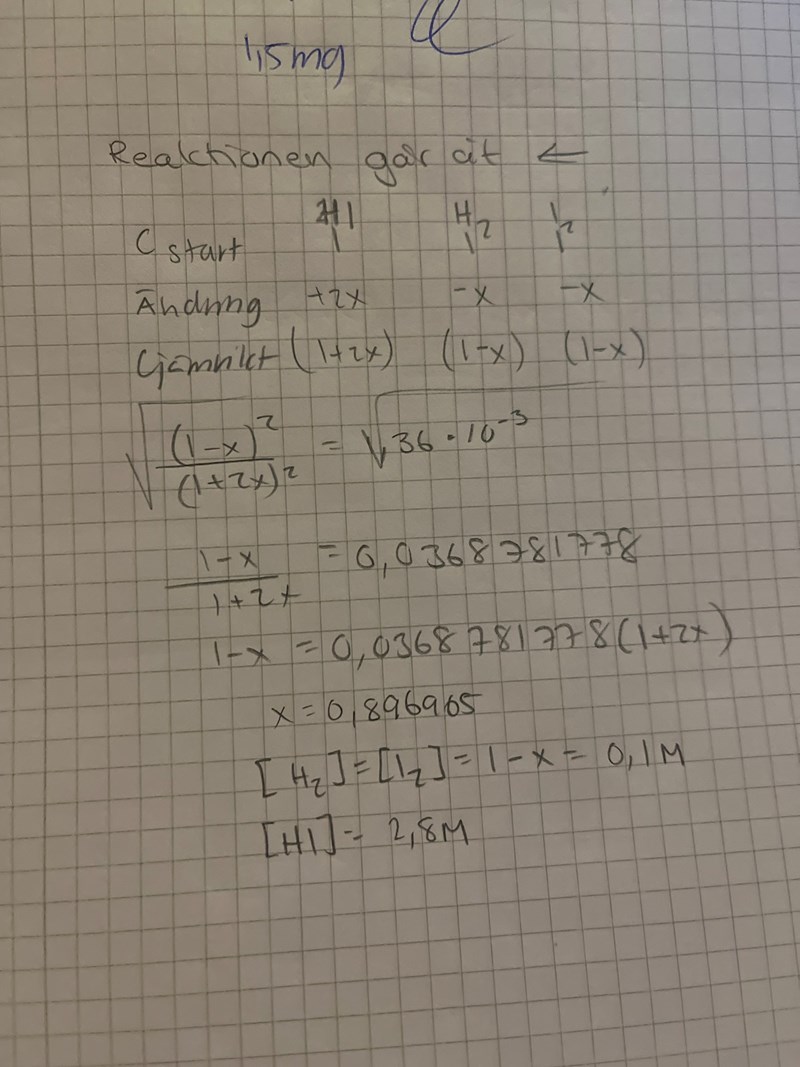 1,5mg
Reaktionen går åt ←
2HI H₂ I₂
C start 1 1 1
Ändring +2x -x -x
Cjämnikt (1+2x) (1-x) (1-x)
√((1-x)²/(1+2x)²) = √36 · 10⁻³
(1-x)/(1+2x) = 0,0368781778
1-x = 0,0368781778(1+2x)
x = 0,896965
[H₂]=[I₂]= 1-x = 0,1M
[HI]= 2,8M